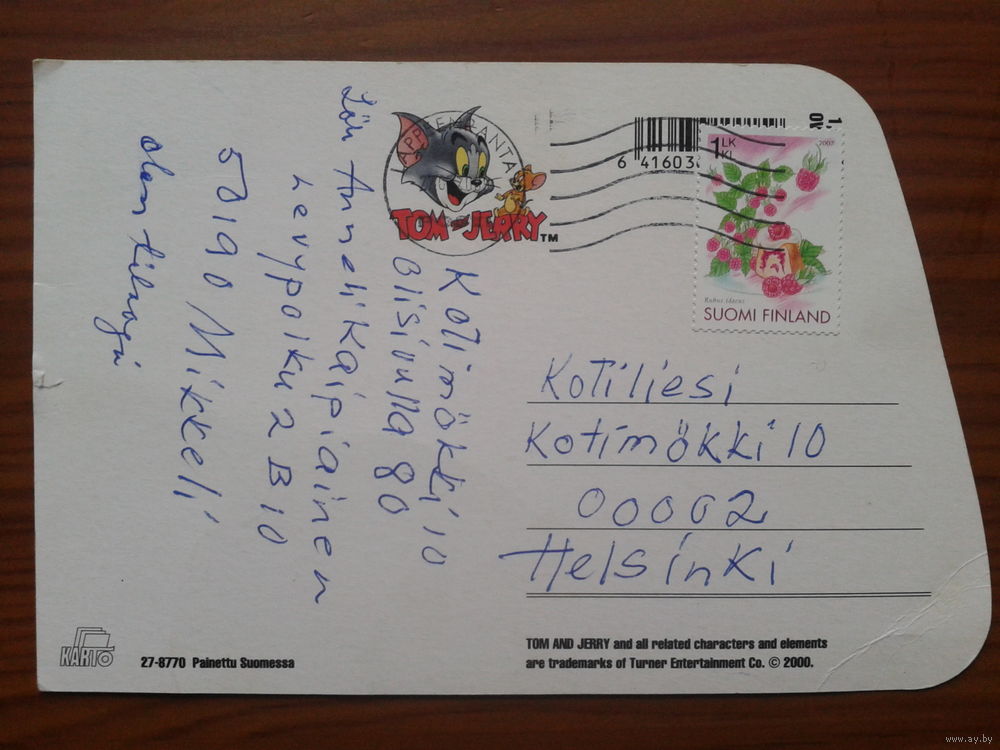 LAPPEENRANTA
TOM AND JERRY™
6 41603
1 LK
KL
2007
Rubus idaeus
SUOMI FINLAND
Kotimökki 10
Olisinulla 80
Anneli Kaipiainen
Levypolku 2 B 10
50190 Mikkeli
olen tilaaja
Kotiliesi
Kotimökki 10
00002
Helsinki
KARTO
27-8770 Painettu Suomessa
TOM AND JERRY and all related characters and elements
are trademarks of Turner Entertainment Co. © 2000.
www.ay.by